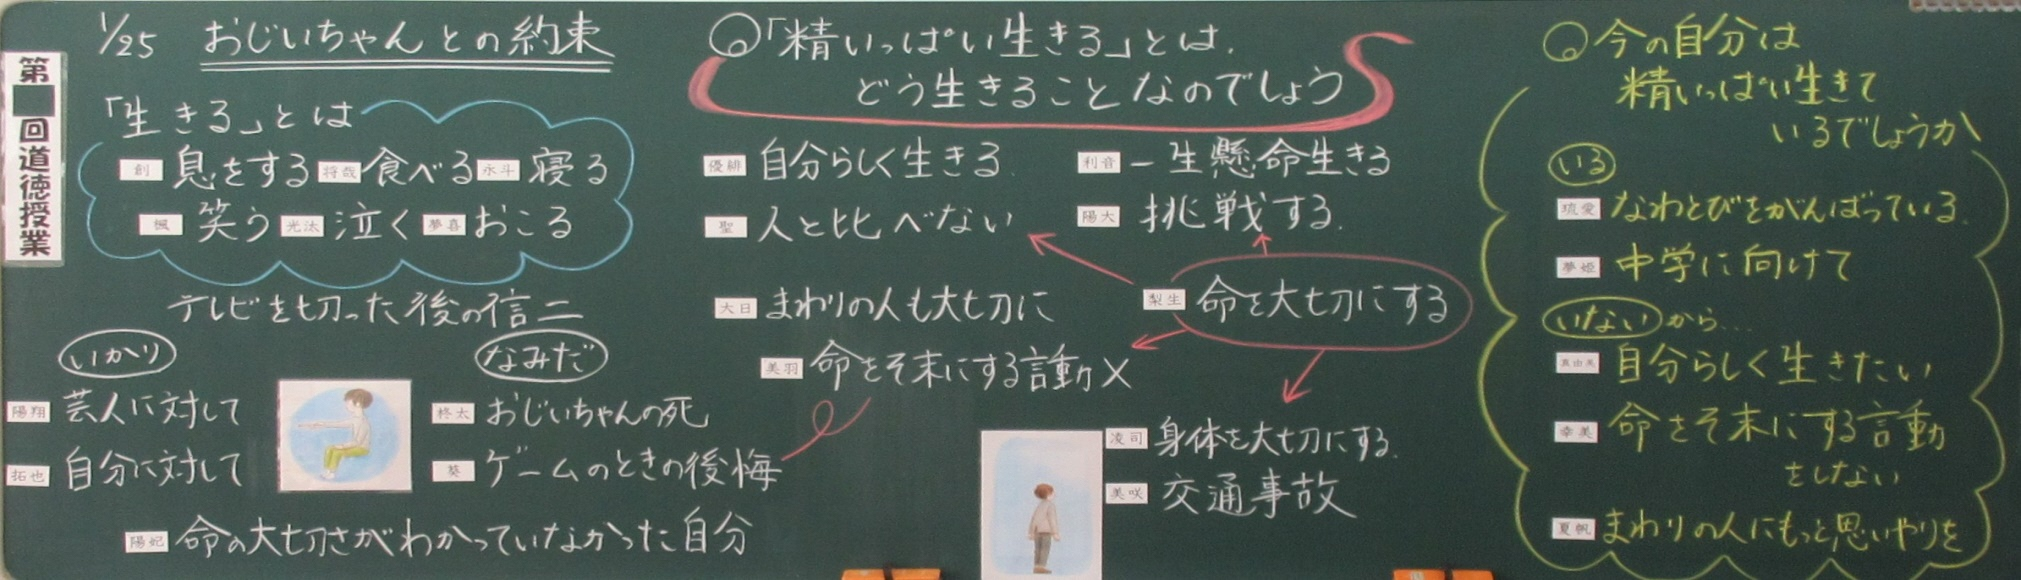 第 回道徳授業
1/25 おじいちゃんとの約束
「生きる」とは
創 息をする 将哉 食べる 永斗 寝る
楓 笑う 光汰 泣く 夢喜 おこる
テレビを切った後の信二
いかり
陽翔 芸人に対して
拓也 自分に対して
なみだ
柊太 おじいちゃんの死
葵 ゲームのときの後悔
陽妃 命の大切さがわかっていなかった自分
「精いっぱい生きる」とは、
どう生きることなのでしょう
優緋 自分らしく生きる
利音 一生懸命生きる
聖 人と比べない
陽大 挑戦する。
大日 まわりの人も大切に
梨生 命を大切にする
美羽 命をそ末にする言動×
凌司 身体を大切にする。
美咲 交通事故
今の自分は
精いっぱい生きて
いるでしょうか
いる
琉愛 なわとびをがんばっている
夢姫 中学に向けて
いないから…
自分らしく生きたい
幸美 命をそ末にする言動
をしない
夏帆 まわりの人にもっと思いやりを